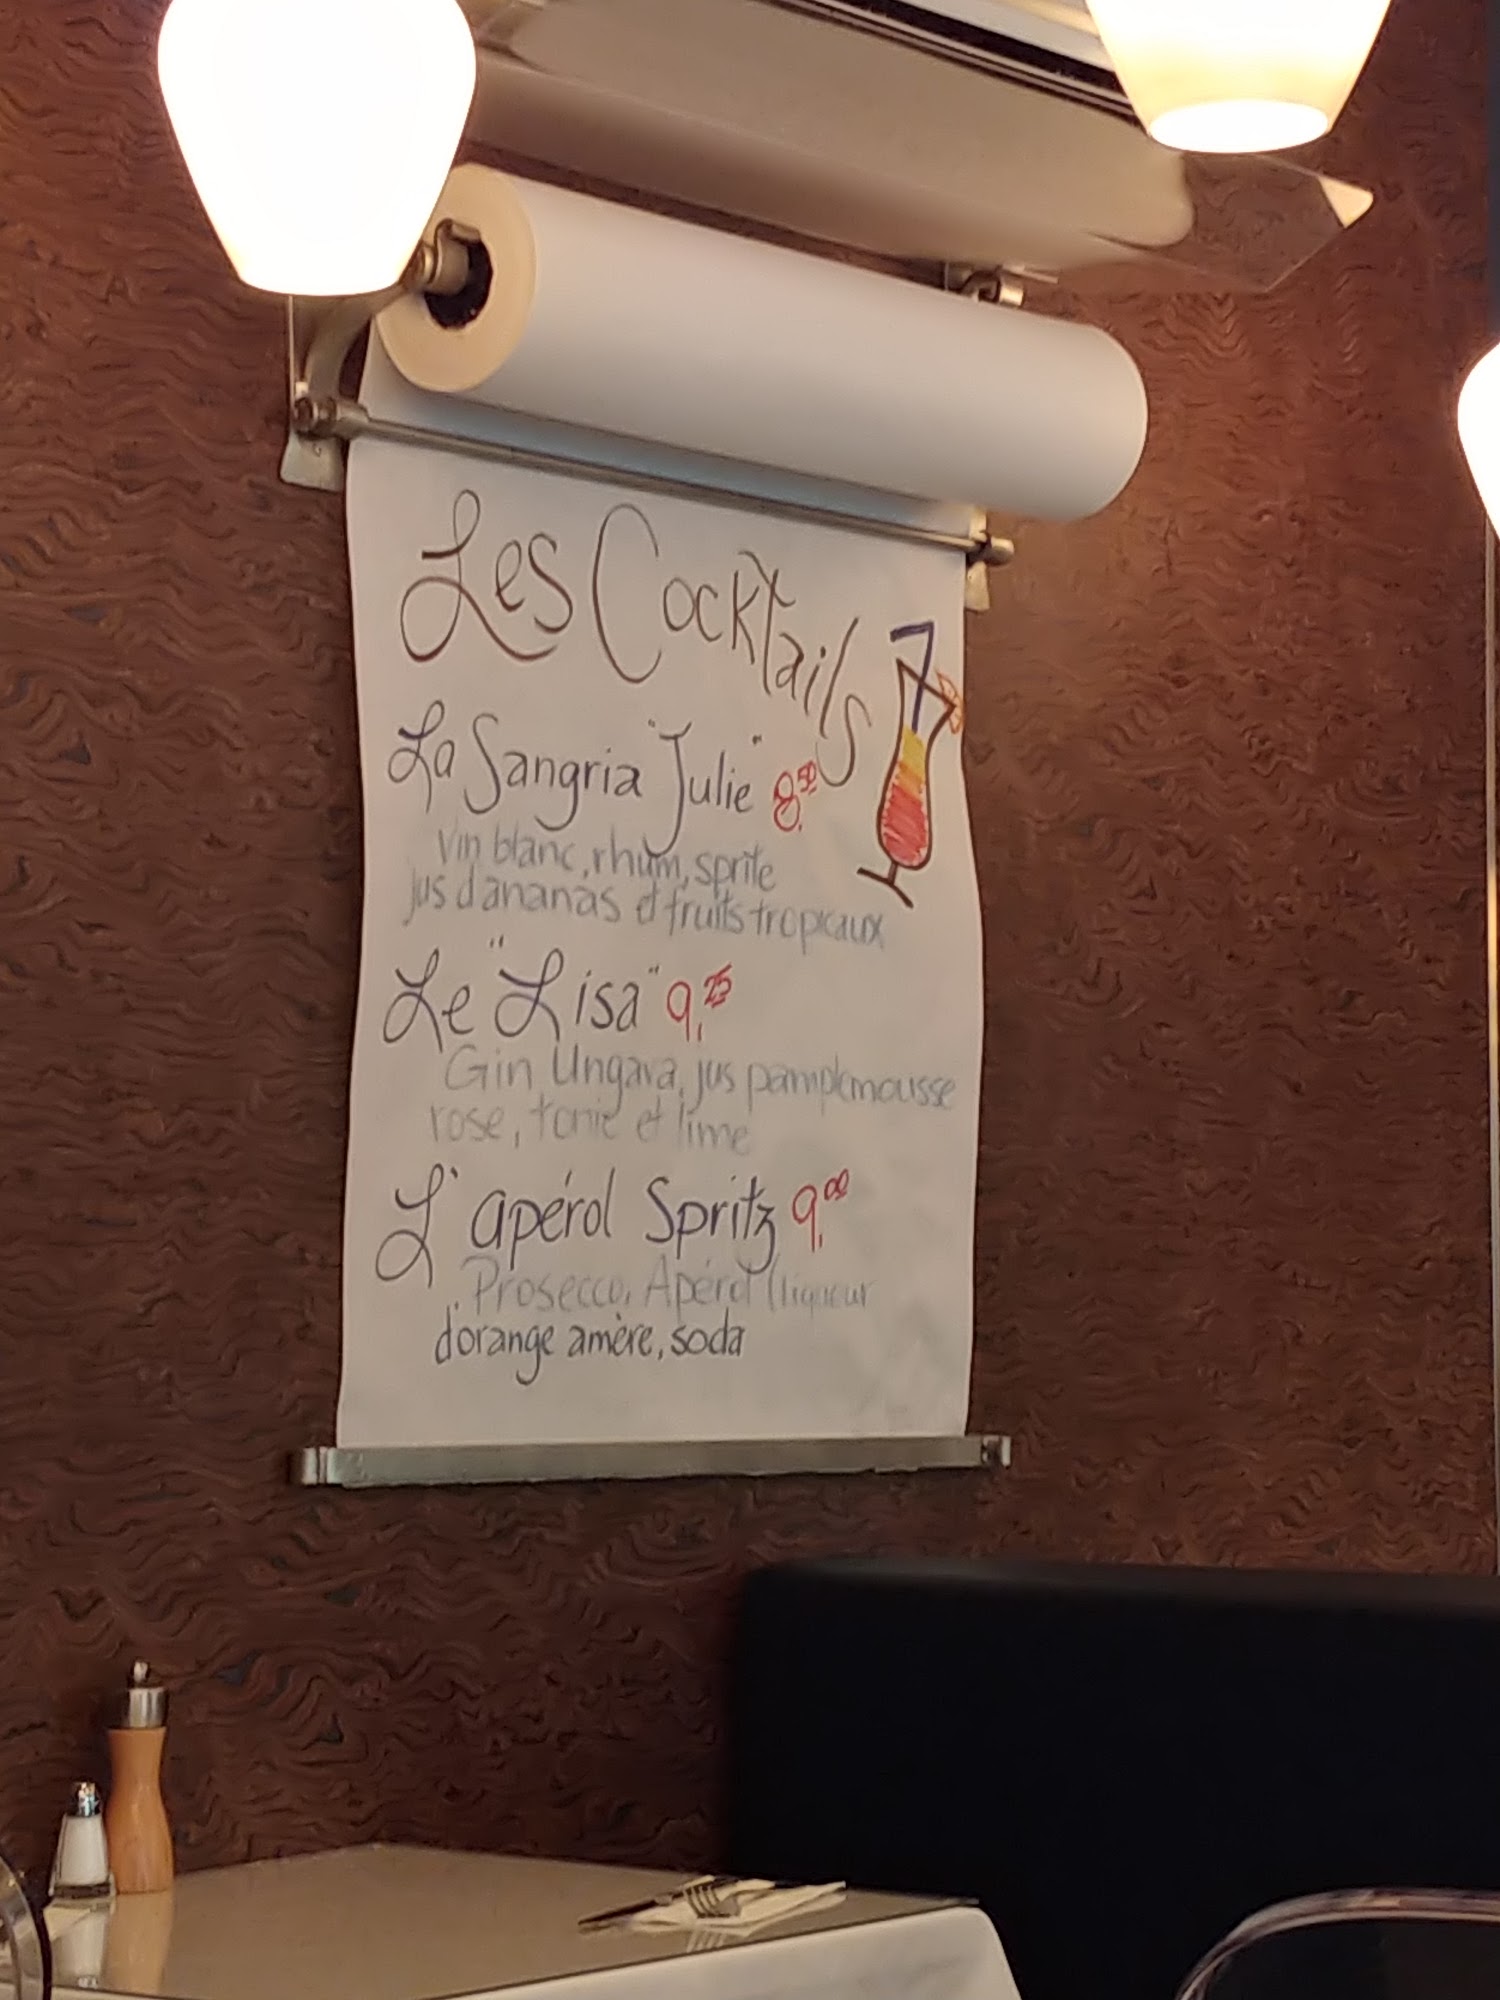 Les Cocktails
La Sangria "Julie" 8,50
Vin blanc, rhum, sprite
jus d'ananas et fruits tropicaux
Le "Lisa" 9,25
Gin Ungava, jus pamplemousse
rose, tonic et lime
L'apérol Spritz 9,00
Prosecco, Apérol (liqueur
d'orange amère, soda